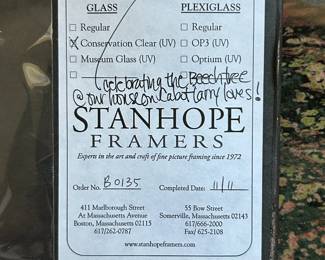 GLASS PLEXIGLASS
Regular Regular
X Conservation Clear (UV) OP3 (UV)
Museum Glass (UV) Optium (UV)
Celebrating the Beech tree
@ our house on Cabot Larry loves!
STANHOPE
FRAMERS
Experts in the art and craft of fine picture framing since 1972
Order No. B0135 Completed Date: 11/11
411 Marlborough Street 55 Bow Street
At Massachusetts Avenue Somerville, Massachusetts 02143
Boston, Massachusetts 02115 617/666-2000
617/262-0787 Fax/ 625-2108
www.stanhopeframers.com